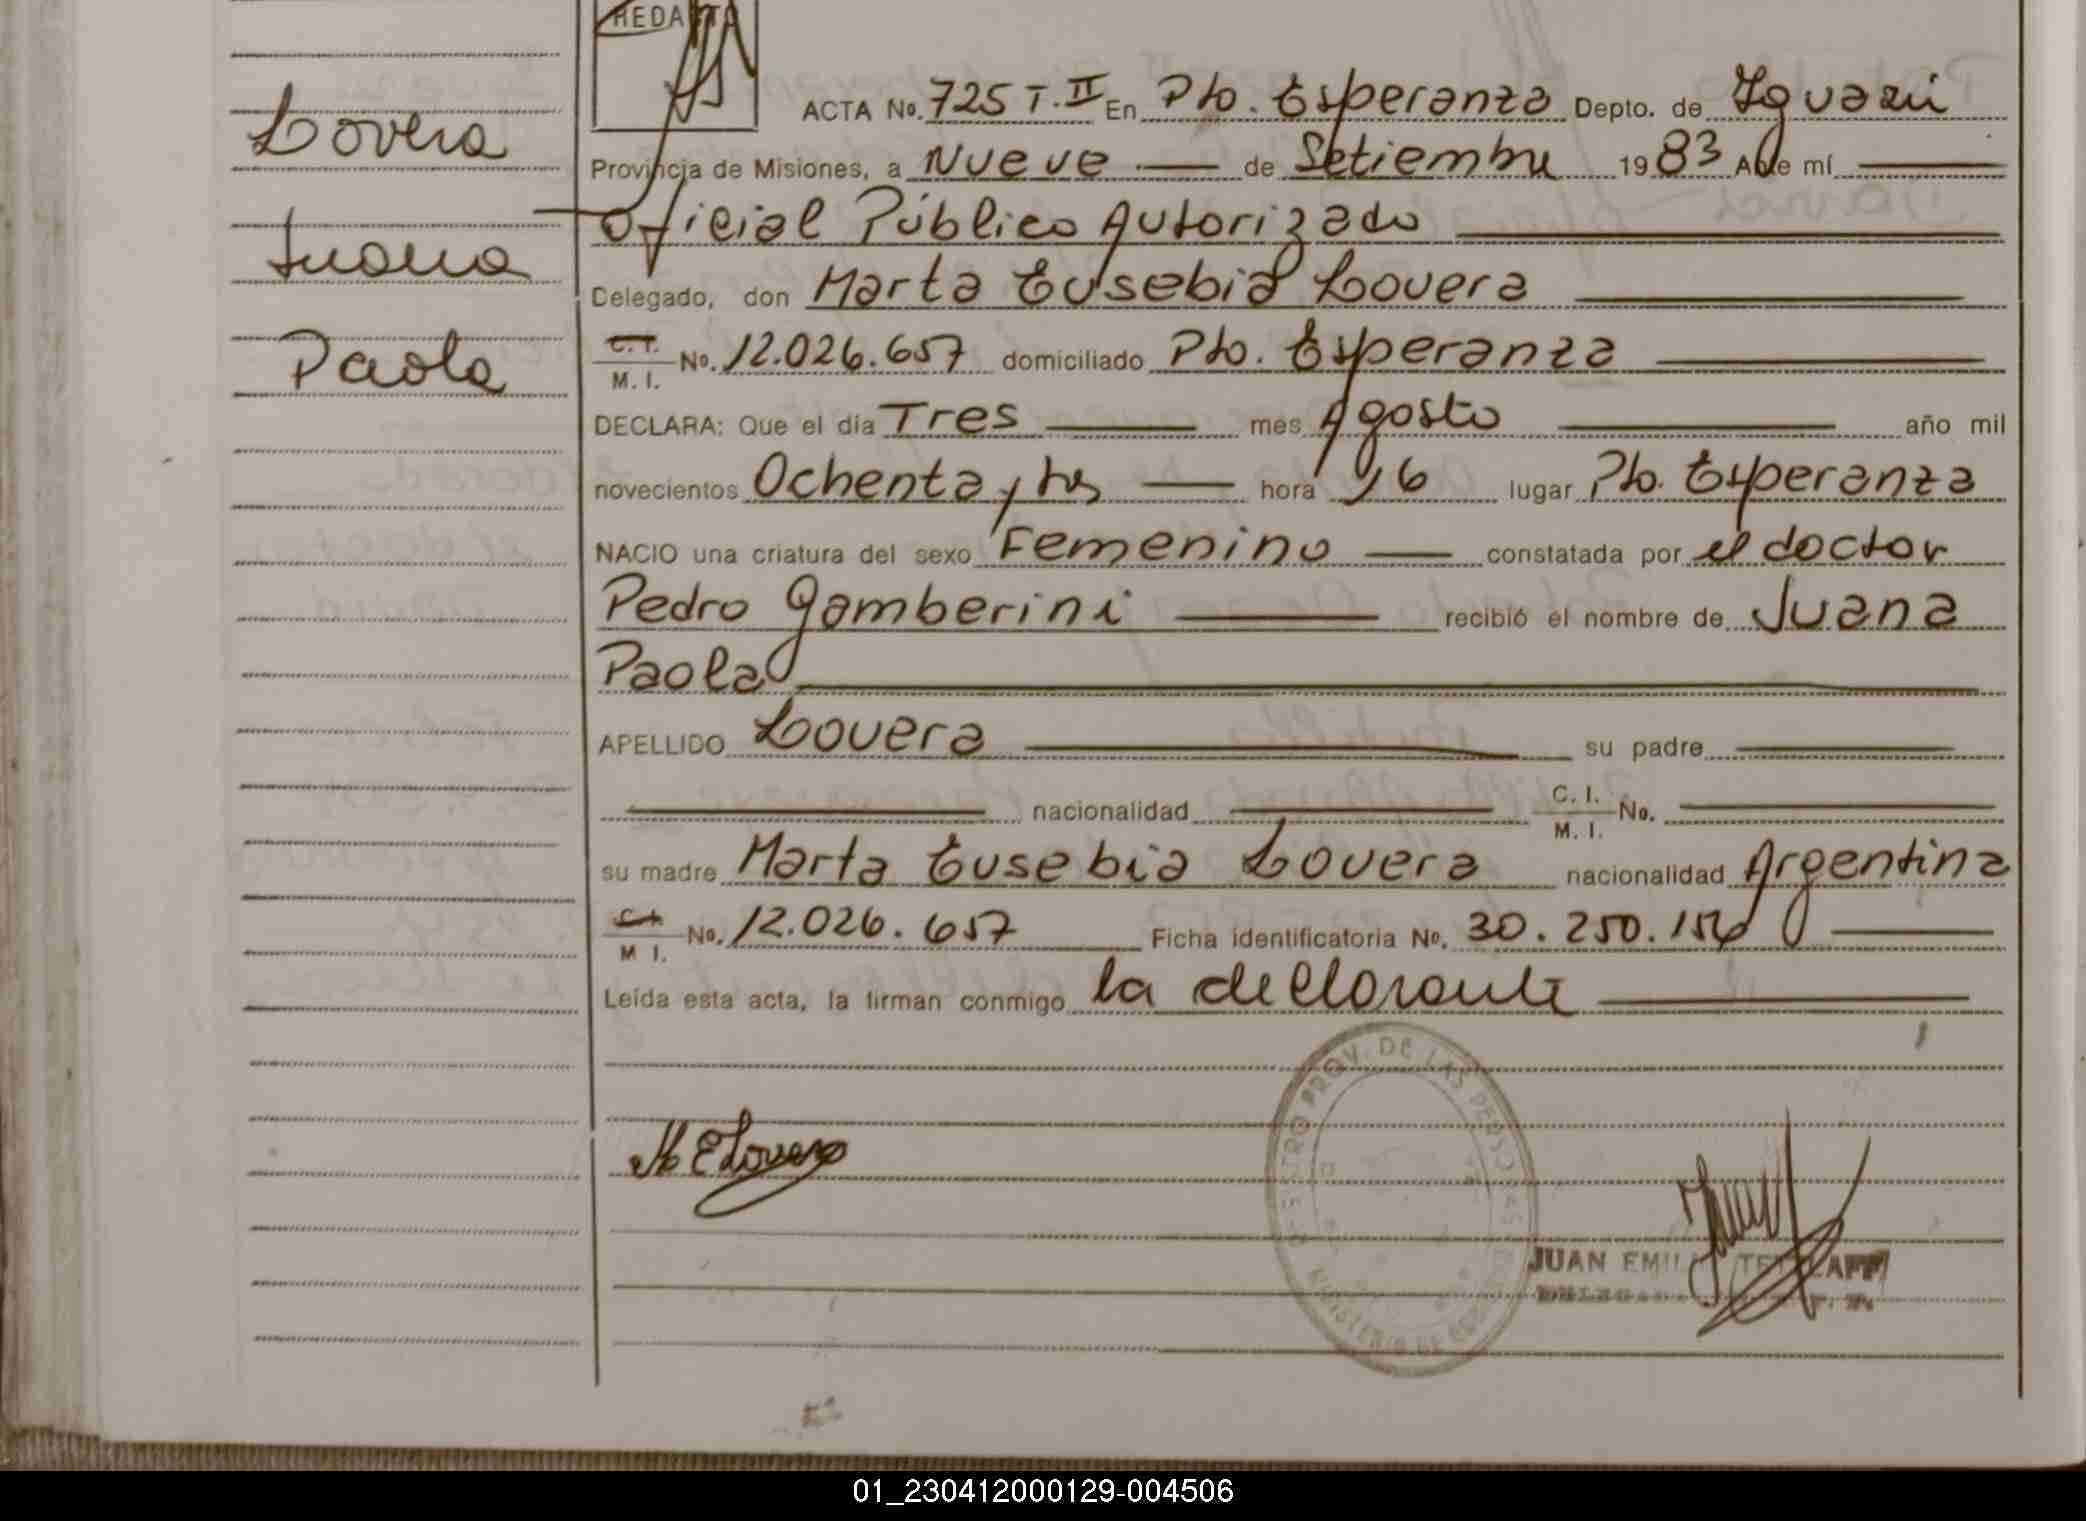 REDACTO
ACTA No. 725 T. II En Pto. Esperanza Depto. de Iguazú
Provincia de Misiones, a Nueve de Setiembre 1983 Ante mí
Oficial Público Autorizado
Delegado, don Marta Eusebia Lovera
C. I. M. I. No. 12.026.657 domiciliado Pto. Esperanza
DECLARA: Que el día Tres mes Agosto año mil
novecientos Ochenta y tres hora 16 lugar Pto. Esperanza
NACIO una criatura del sexo Femenino constatada por el doctor
Pedro Gamberini recibió el nombre de Juana
Paola
APELLIDO Lovera su padre
nacionalidad C. I. M. I. No.
su madre Marta Eusebia Lovera nacionalidad Argentina
C. I. M I. No. 12.026.657 Ficha identificatoria No. 30.250.156
Leída esta acta, la firman conmigo la declarante
Lovera
Juana
Paola
M E Lovera
PROV. DE LAS PERSONAS
MINISTERIO DE
JUAN EMILI
01_230412000129-004506